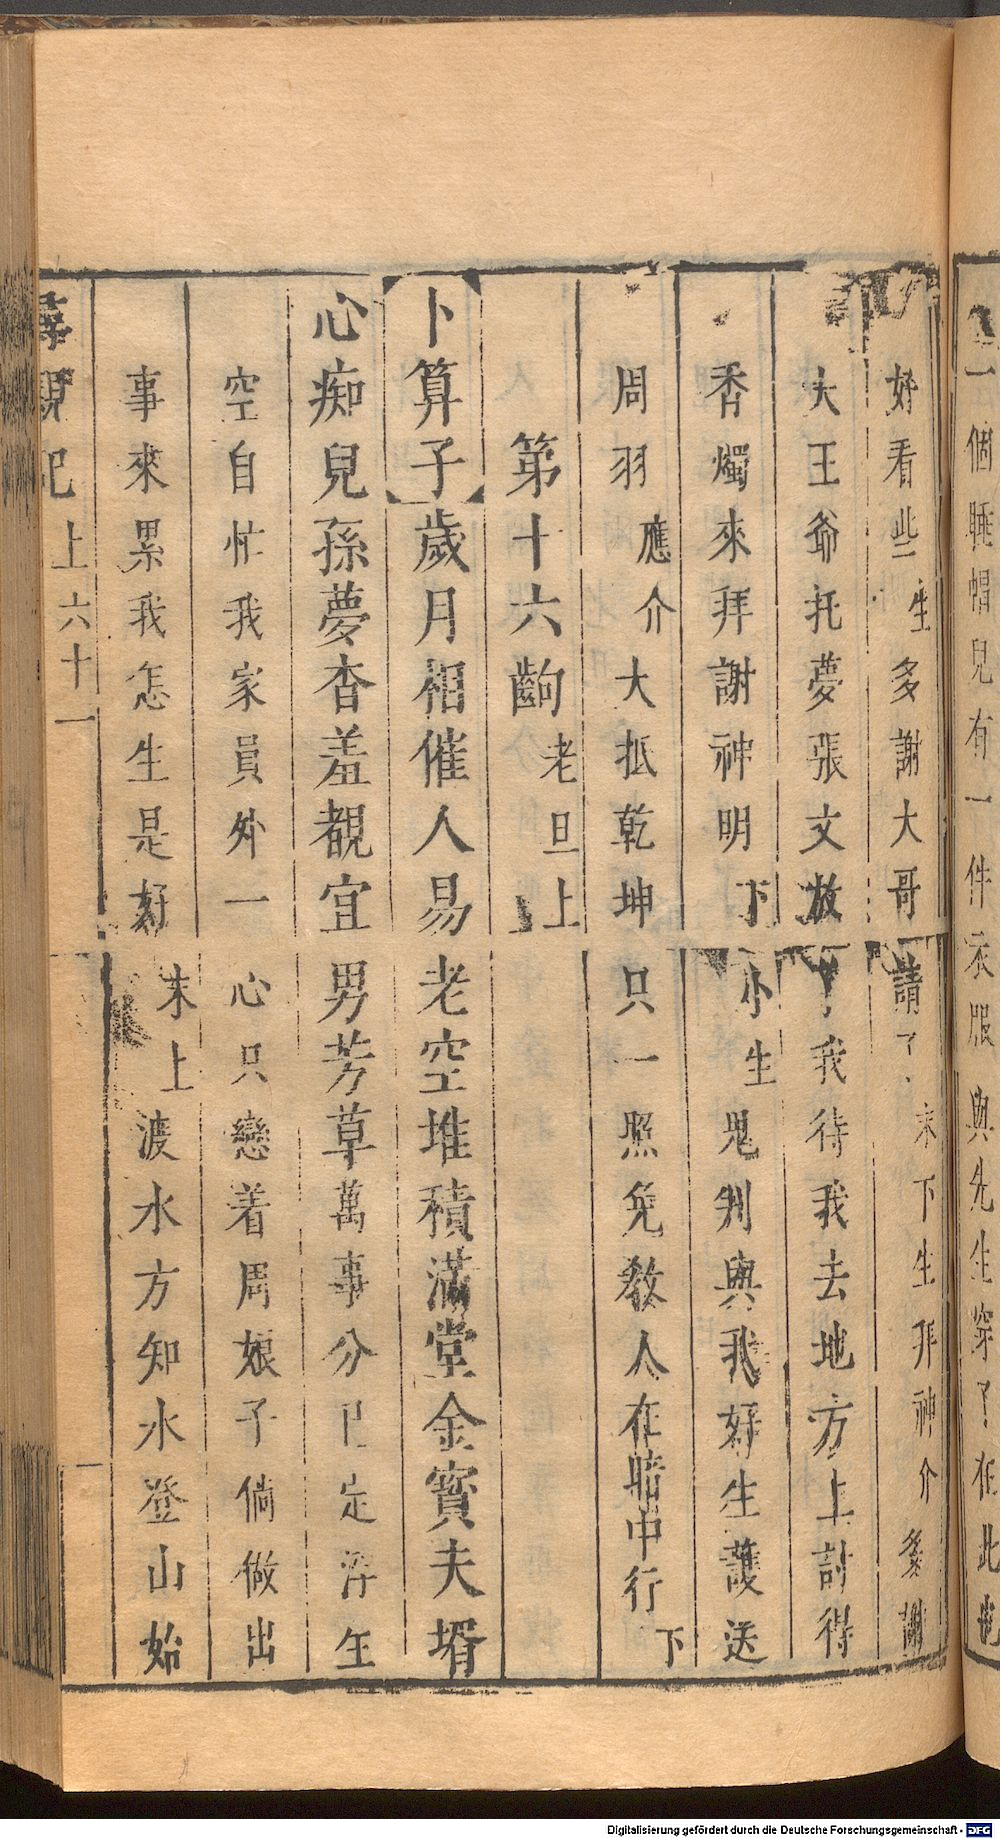 一個睡帽兒有一件衣服與先生穿了在此也
好看些生多謝大哥請了末下生拜神介多謝
大王爺托夢張文放了我待我去地方上討得
香燭來拜謝神明下小生鬼判與我好生護送
周羽應介大抵乾坤只一照免教人在暗中行下
第十六齣老旦上
卜算子歲月相催人易老空堆積滿堂金寶夫壻
心痴兒孫夢杳羞覩宜男芳草萬事分已定浮生
空自忙我家員外一心只戀着周娘子倘做出
事來累我怎生是好末上渡水方知水登山始
尋親記上六十一
Digitalisierung gefördert durch die Deutsche Forschungsgemeinschaft - DFG